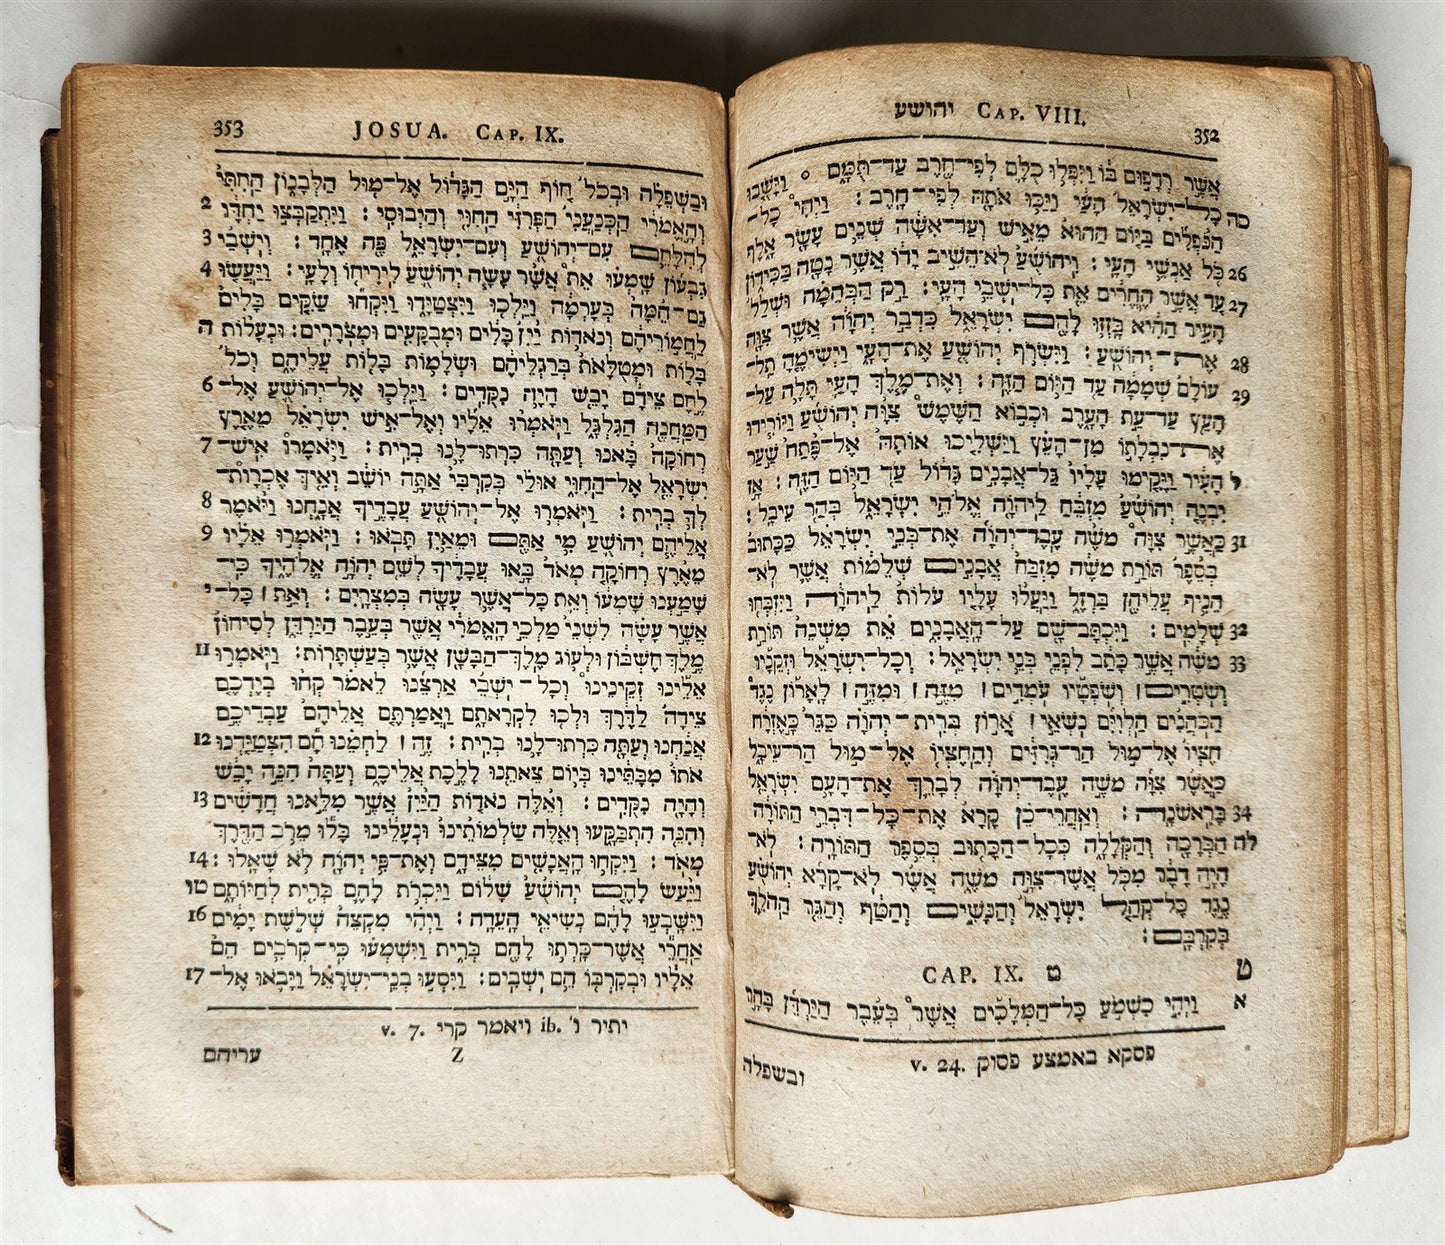 יהושע CAP. VIII. 352
אֲשֶׁר רְדָפוּם בּוֹ וַיִּפְּלוּ כֻלָּם לְפִי־חֶרֶב עַד־תֻּמָּם ׃ וַיָּשֻׁבוּ
כה כָל־יִשְׂרָאֵל הָעַי וַיַּכּוּ אֹתָהּ לְפִי־חָרֶב׃ וַיְהִי כָל־
הַנֹּפְלִים בַּיּוֹם הַהוּא מֵאִישׁ וְעַד־אִשָּׁה שְׁנֵים עָשָׂר אָלֶף
26 כֹּל אַנְשֵׁי הָעָי׃ וִיהוֹשֻׁעַ לֹא־הֵשִׁיב יָדוֹ אֲשֶׁר נָטָה בַּכִּידוֹן
27 עַד אֲשֶׁר הֶחֱרִים אֵת כָּל־יֹשְׁבֵי הָעָי׃ רַק הַבְּהֵמָה וּשְׁלַל
הָעִיר הַהִיא בָּזְזוּ לָהֶם יִשְׂרָאֵל כִּדְבַר יְהוָה אֲשֶׁר צִוָּה
28 אֶת־יְהוֹשֻׁעַ׃ וַיִּשְׂרֹף יְהוֹשֻׁעַ אֶת־הָעָי וַיְשִׂימֶהָ תֵּל־
29 עוֹלָם שְׁמָמָה עַד הַיּוֹם הַזֶּה׃ וְאֶת־מֶלֶךְ הָעַי תָּלָה עַל־
הָעֵץ עַד־עֵת הָעֶרֶב וּכְבוֹא הַשֶּׁמֶשׁ צִוָּה יְהוֹשֻׁעַ וַיּוֹרִידוּ
אֶת־נִבְלָתוֹ מִן־הָעֵץ וַיַּשְׁלִיכוּ אוֹתָהּ אֶל־פֶּתַח שַׁעַר
ל הָעִיר וַיָּקִימוּ עָלָיו גַּל־אֲבָנִים גָּדוֹל עַד הַיּוֹם הַזֶּה׃ אָז
יִבְנֶה יְהוֹשֻׁעַ מִזְבֵּחַ לַיהוָה אֱלֹהֵי יִשְׂרָאֵל בְּהַר עֵיבָל׃
31 כַּאֲשֶׁר צִוָּה מֹשֶׁה עֶבֶד־יְהוָה אֶת־בְּנֵי יִשְׂרָאֵל כַּכָּתוּב
בְּסֵפֶר תּוֹרַת מֹשֶׁה מִזְבַּח אֲבָנִים שְׁלֵמוֹת אֲשֶׁר לֹא־
הֵנִיף עֲלֵיהֶן בַּרְזֶל וַיַּעֲלוּ עָלָיו עֹלוֹת לַיהוָה וַיִּזְבְּחוּ
32 שְׁלָמִים׃ וַיִּכְתָּב־שָׁם עַל־הָאֲבָנִים אֵת מִשְׁנֵה תּוֹרַת
33 מֹשֶׁה אֲשֶׁר כָּתַב לִפְנֵי בְּנֵי יִשְׂרָאֵל׃ וְכָל־יִשְׂרָאֵל וּזְקֵנָיו
וְשֹׁטְרִים׀ וְשֹׁפְטָיו עֹמְדִים׀ מִזֶּה׀ וּמִזֶּה׀ לָאָרוֹן נֶגֶד
הַכֹּהֲנִים הַלְוִיִּם נֹשְׂאֵי׀ אֲרוֹן בְּרִית־יְהוָה כַּגֵּר כָּאֶזְרָח
חֶצְיוֹ אֶל־מוּל הַר־גְּרִזִים וְהַחֶצְיוֹ אֶל־מוּל הַר־עֵיבָל
כַּאֲשֶׁר צִוָּה מֹשֶׁה עֶבֶד־יְהוָה לְבָרֵךְ אֶת־הָעָם יִשְׂרָאֵל
34 בָּרִאשֹׁנָה׃ וְאַחֲרֵי־כֵן קָרָא אֶת־כָּל־דִּבְרֵי הַתּוֹרָה
לה הַבְּרָכָה וְהַקְּלָלָה כְּכָל־הַכָּתוּב בְּסֵפֶר הַתּוֹרָה׃ לֹא־
הָיָה דָבָר מִכֹּל אֲשֶׁר־צִוָּה מֹשֶׁה אֲשֶׁר לֹא־קָרָא יְהוֹשֻׁעַ
נֶגֶד כָּל־קְהַל יִשְׂרָאֵל וְהַנָּשִׁים וְהַטַּף וְהַגֵּר הַהֹלֵךְ
בְּקִרְבָּם׃
ט CAP. IX. ט
א וַיְהִי כִשְׁמֹעַ כָּל־הַמְּלָכִים אֲשֶׁר בְּעֵבֶר הַיַּרְדֵּן בָּהָר
v. 24. פסקא באמצע פסוק
ובשפלה
353 JOSUA. CAP. IX.
וּבַשְּׁפֵלָה וּבְכֹל חוֹף הַיָּם הַגָּדוֹל אֶל־מוּל הַלְּבָנוֹן הַחִתִּי
וְהָאֱמֹרִי הַכְּנַעֲנִי הַפְּרִזִּי הַחִוִּי וְהַיְבוּסִי׃ וַיִּתְקַבְּצוּ יַחְדָּו 2
לְהִלָּחֵם עִם־יְהוֹשֻׁעַ וְעִם־יִשְׂרָאֵל פֶּה אֶחָד׃ וְיֹשְׁבֵי 3
גִבְעוֹן שָׁמְעוּ אֵת אֲשֶׁר עָשָׂה יְהוֹשֻׁעַ לִירִיחוֹ וְלָעָי׃ וַיַּעֲשׂוּ 4
גַם־הֵמָּה בְּעָרְמָה וַיֵּלְכוּ וַיִּצְטַיָּרוּ וַיִּקְחוּ שַׂקִּים בָּלִים
לַחֲמוֹרֵיהֶם וְנֹאדוֹת יַיִן בָּלִים וּמְבֻקָּעִים וּמְצֹרָרִים׃ וּנְעָלוֹת ה
בָּלוֹת וּמְטֻלָּאֹת בְּרַגְלֵיהֶם וּשְׂלָמוֹת בָּלוֹת עֲלֵיהֶם וְכֹל
לֶחֶם צֵידָם יָבֵשׁ הָיָה נִקֻּדִים׃ וַיֵּלְכוּ אֶל־יְהוֹשֻׁעַ אֶל־ 6
הַמַּחֲנֶה הַגִּלְגָּל וַיֹּאמְרוּ אֵלָיו וְאֶל־אִישׁ יִשְׂרָאֵל מֵאֶרֶץ
רְחוֹקָה בָּאנוּ וְעַתָּה כִּרְתוּ־לָנוּ בְרִית׃ וַיֹּאמְרוּ אִישׁ־ 7
יִשְׂרָאֵל אֶל־הַחִוִּי אוּלַי בְּקִרְבִּי אַתָּה יוֹשֵׁב וְאֵיךְ אֶכְרוֹת־
לְךָ בְרִית׃ וַיֹּאמְרוּ אֶל־יְהוֹשֻׁעַ עֲבָדֶיךָ אֲנָחְנוּ וַיֹּאמֶר 8
אֲלֵיהֶם יְהוֹשֻׁעַ מִי אַתֶּם וּמֵאַיִן תָּבֹאוּ׃ וַיֹּאמְרוּ אֵלָיו 9
מֵאֶרֶץ רְחוֹקָה מְאֹד בָּאוּ עֲבָדֶיךָ לְשֵׁם יְהוָה אֱלֹהֶיךָ כִּי־
שָׁמַעְנוּ שָׁמְעוֹ וְאֵת כָּל־אֲשֶׁר עָשָׂה בְּמִצְרָיִם׃ וְאֵת׀ כָּל־ י
אֲשֶׁר עָשָׂה לִשְׁנֵי מַלְכֵי הָאֱמֹרִי אֲשֶׁר בְּעֵבֶר הַיַּרְדֵּן לְסִיחוֹן
מֶלֶךְ חֶשְׁבּוֹן וּלְעוֹג מֶלֶךְ־הַבָּשָׁן אֲשֶׁר בְּעַשְׁתָּרוֹת׃ וַיֹּאמְרוּ 11
אֵלֵינוּ זְקֵינֵינוּ וְכָל־יֹשְׁבֵי אַרְצֵנוּ לֵאמֹר קְחוּ בְיֶדְכֶם
צֵידָה לַדֶּרֶךְ וּלְכוּ לִקְרָאתָם וַאֲמַרְתֶּם אֲלֵיהֶם עַבְדֵיכֶם
אֲנַחְנוּ וְעַתָּה כִּרְתוּ־לָנוּ בְרִית׃ זֶה׀ לַחְמֵנוּ חָם הִצְטַיַּדְנוּ 12
אֹתוֹ מִבָּתֵּינוּ בְּיוֹם צֵאתֵנוּ לָלֶכֶת אֲלֵיכֶם וְעַתָּה הִנֵּה יָבֵשׁ
וְהָיָה נִקֻּדִים׃ וְאֵלֶּה נֹאדוֹת הַיַּיִן אֲשֶׁר מִלֵּאנוּ חֲדָשִׁים 13
וְהִנֵּה הִתְבַּקָּעוּ וְאֵלֶּה שַׂלְמוֹתֵינוּ וּנְעָלֵינוּ בָּלוּ מֵרֹב הַדֶּרֶךְ
מְאֹד׃ וַיִּקְחוּ הָאֲנָשִׁים מִצֵּידָם וְאֶת־פִּי יְהוָה לֹא שָׁאָלוּ׃ 14
וַיַּעַשׂ לָהֶם יְהוֹשֻׁעַ שָׁלוֹם וַיִּכְרֹת לָהֶם בְּרִית לְחַיּוֹתָם טו
וַיִּשָּׁבְעוּ לָהֶם נְשִׂיאֵי הָעֵדָה׃ וַיְהִי מִקְצֵה שְׁלֹשֶׁת יָמִים 16
אַחֲרֵי אֲשֶׁר־כָּרְתוּ לָהֶם בְּרִית וַיִּשְׁמְעוּ כִּי־קְרֹבִים הֵם
אֵלָיו וּבְקִרְבּוֹ הֵם יֹשְׁבִים׃ וַיִּסְעוּ בְנֵי־יִשְׂרָאֵל וַיָּבֹאוּ אֶל־ 17
v. 7. ויאמר קרי ib. יתיר ו'
Z עריהם